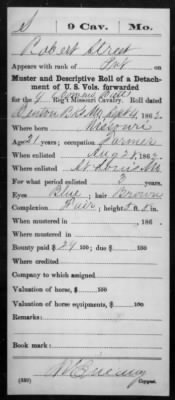 S | 9 Cav. | Mo.
Robert Street
Appears with rank of Pvt on
Muster and Descriptive Roll of a Detach-
ment of U. S. Vols. forwarded
for the 9 Reg't Missouri Cavalry. Roll dated
Benton Bks Mo Sept 4, 1862.
Where born Missouri
Age 21 years; occupation Farmer
When enlisted Aug 28, 1862.
Where enlisted St Louis Mo
For what period enlisted 3 years.
Eyes Blue; hair Brown
Complexion Fair; height 5 ft. 8 in.
When mustered in , 186 .
Where mustered in
Bounty paid $29 100; due $ 100
Where credited
Company to which assigned
Valuation of horse, $ 100
Valuation of horse equipments, $ 100
Remarks:
Book mark:
(339) Copyist.